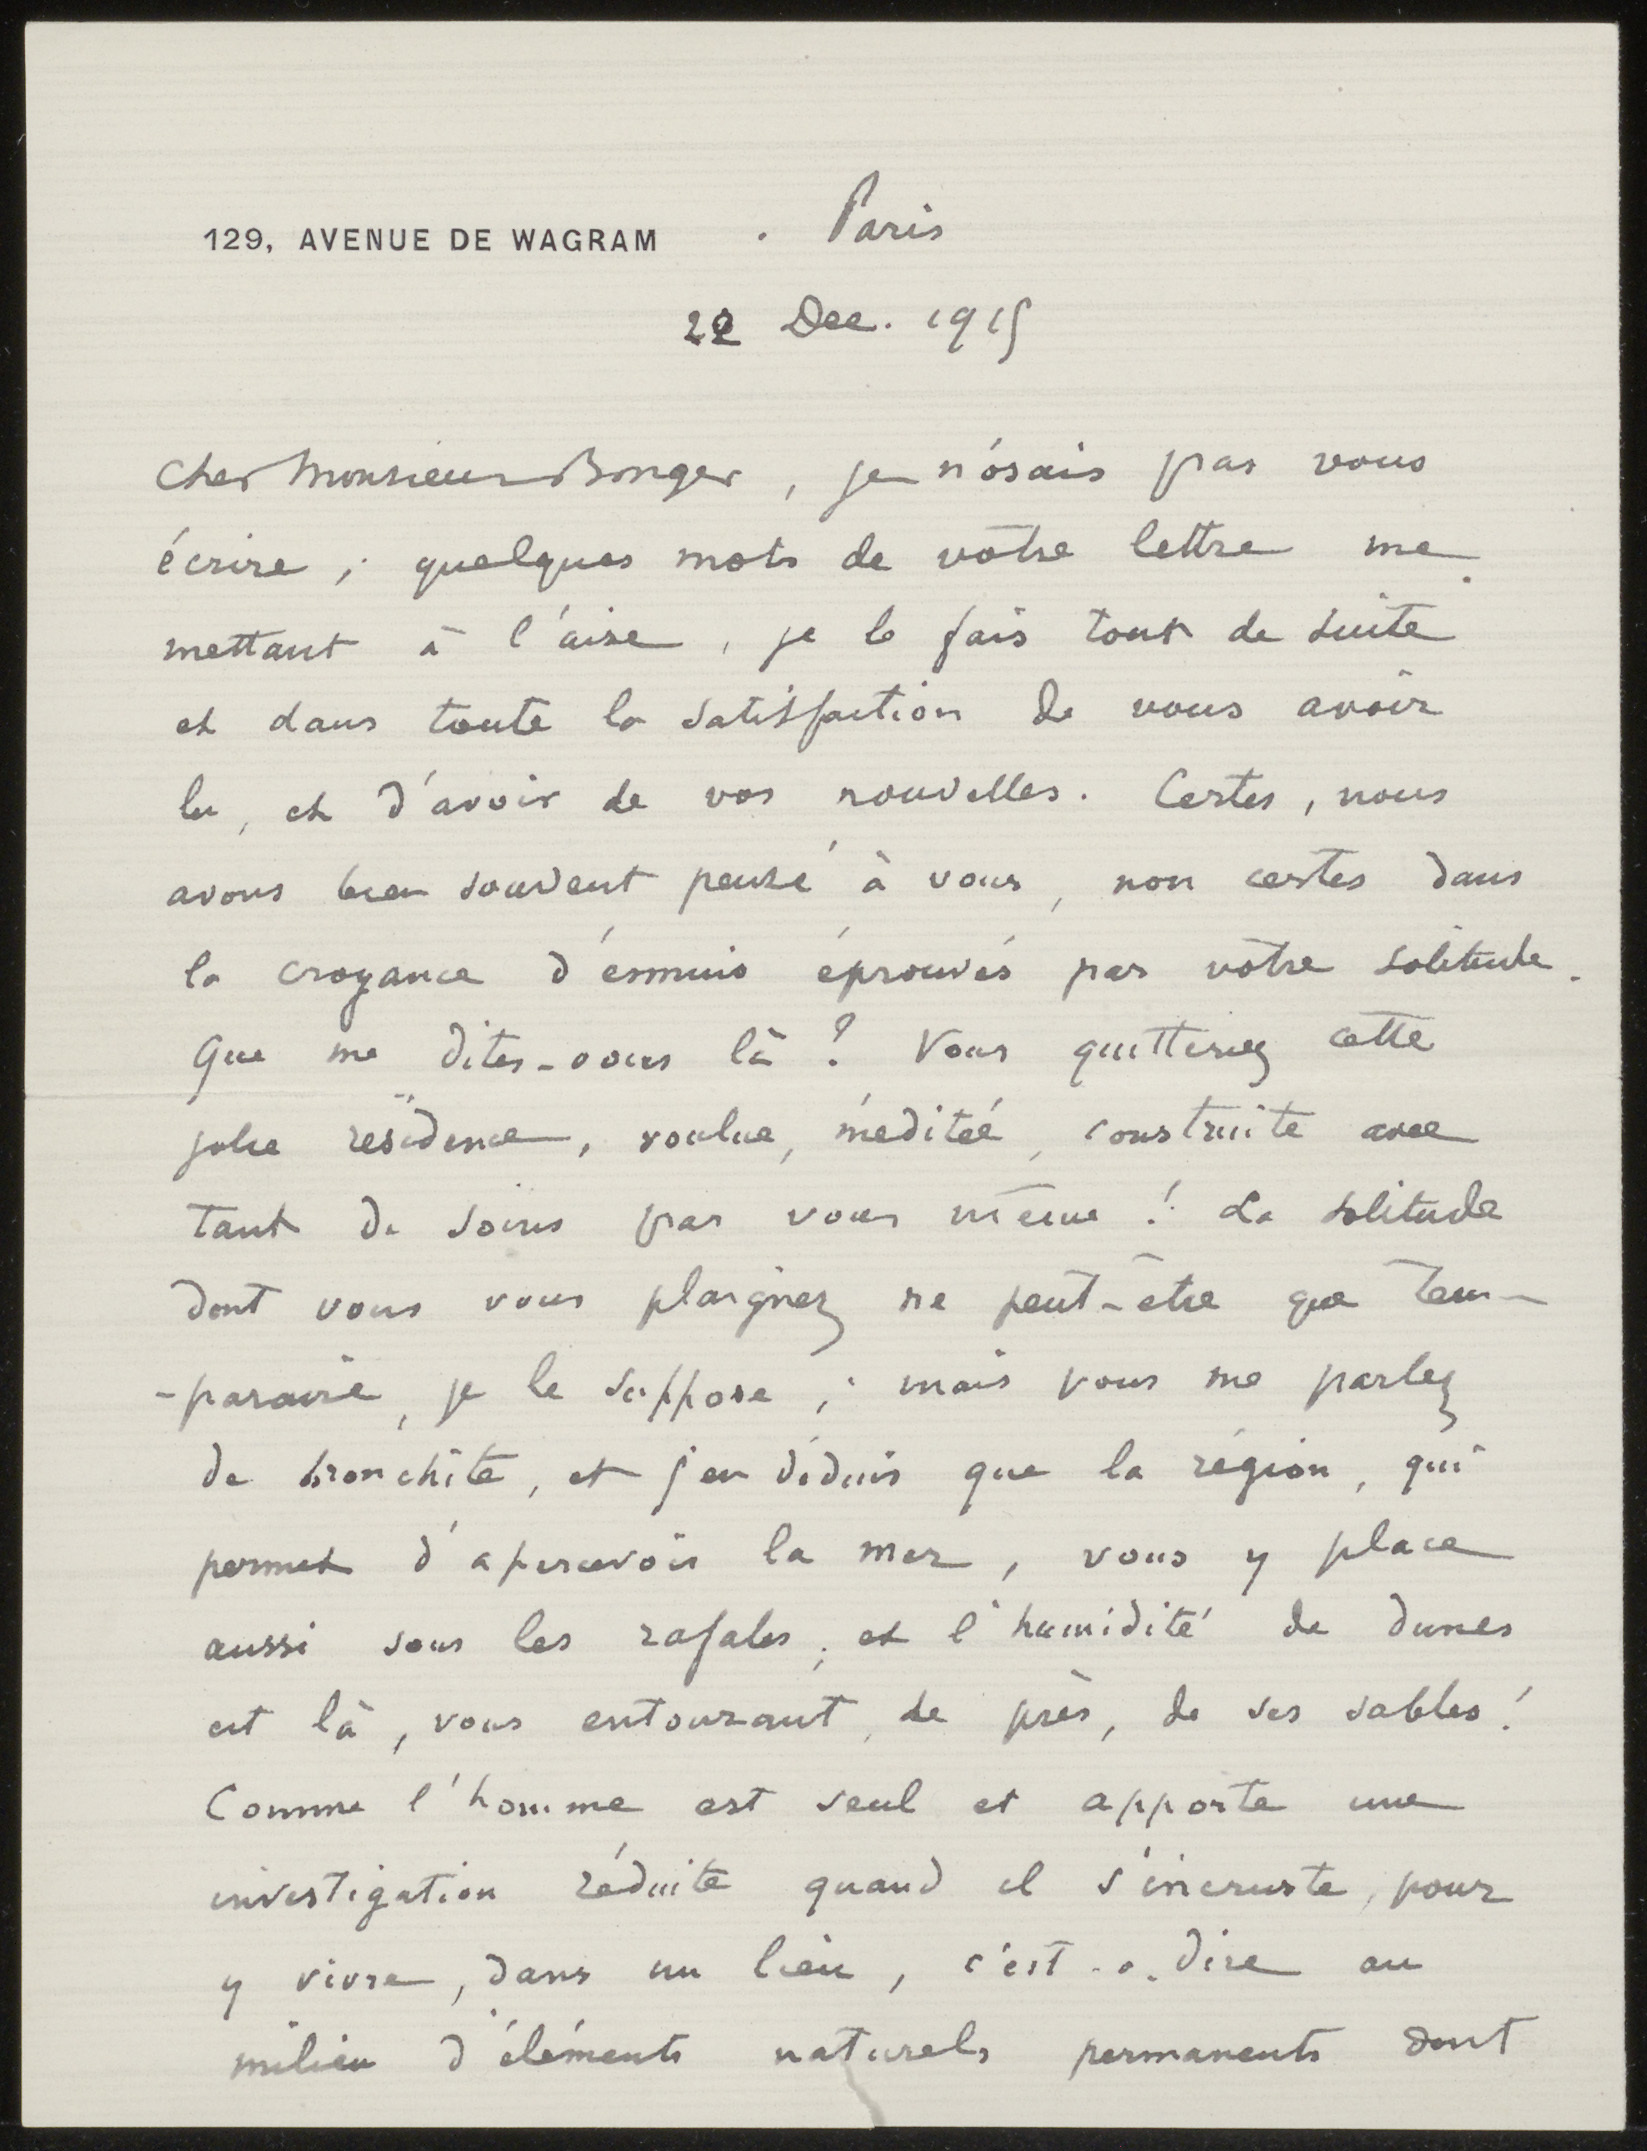 129, AVENUE DE WAGRAM . Paris
22 Dec. 1915
Cher Monsieur Bonger, je n'osais pas vous
écrire ; quelques mots de votre lettre me
mettant à l'aise, je le fais tout de suite
et dans toute la satisfaction de vous avoir
lu, et d'avoir de vos nouvelles. Certes, nous
avons bien souvent pensé à vous, non certes dans
la croyance d'ennuis éprouvés par votre solitude.
Que me dites-vous là ? Vous quitteriez cette
jolie résidence, voulue, méditée, construite avec
tant de soins par vous même ! La solitude
dont vous vous plaignez ne peut-être que tem-
-poraire, je le suppose ; mais vous me parlez
de bronchite, et j'en déduis que la région, qui
permet d'apercevoir la mer, vous y place
aussi sous les rafales ; et l'humidité de dunes
est là, vous entourant, de près, de ses sables !
Comme l'homme est seul et apporte une
investigation réduite quand il s'incruste, pour
y vivre, dans un lieu, c'est-a-dire au
milieu d'éléments naturels permanents dont